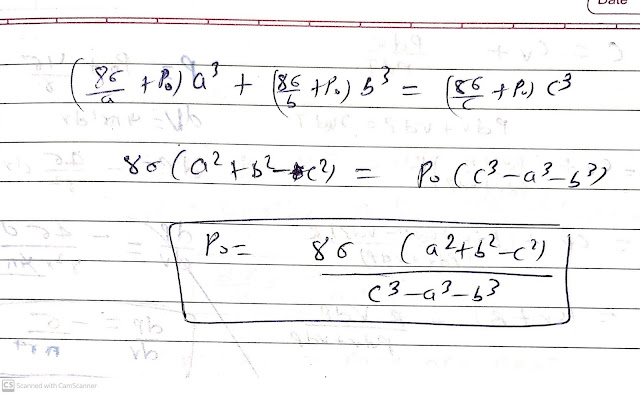 Date
(8σ/a + P₀) a³ + (8σ/b + P₀) b³ = (8σ/c + P₀) c³
8σ (a² + b² - c²) = P₀ (c³ - a³ - b³)
P₀ = 8σ (a² + b² - c²) / c³ - a³ - b³
CS Scanned with CamScanner